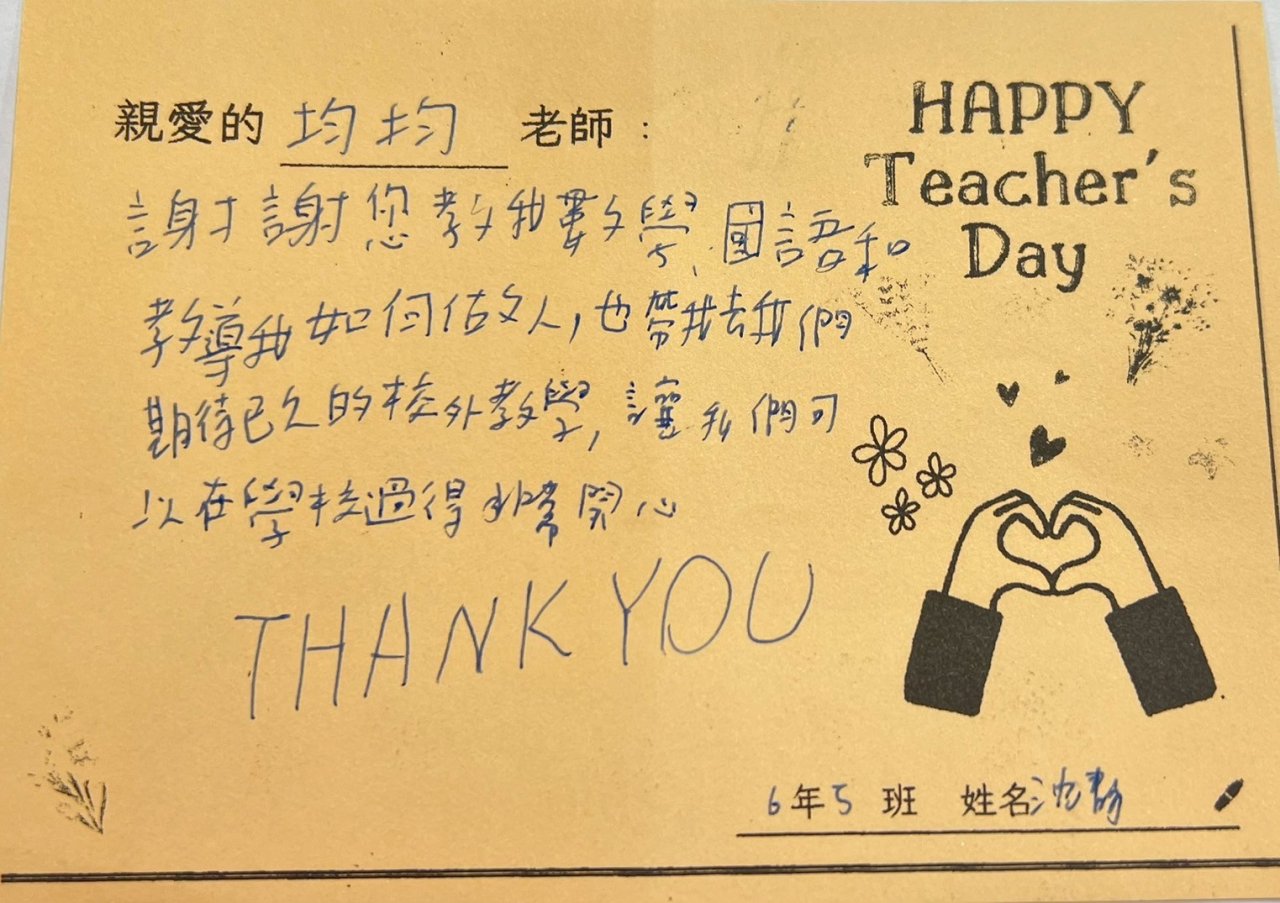 親愛的 均均 老師：
謝謝您教我數學、國語和
教導我如何做人，也帶我去我們
期待已久的校外教學，讓我們可
以在學校過得非常開心
THANK YOU
HAPPY
Teacher's
Day
6年5班 姓名沈